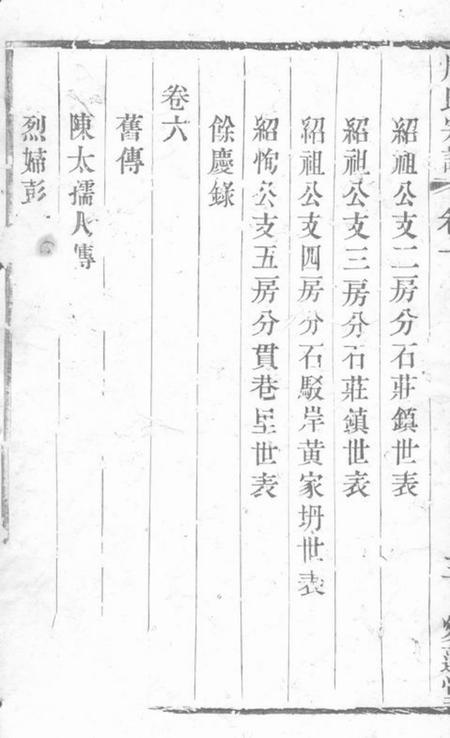 紹祖公支二房分石莊鎮世表
紹祖公支三房分石莊鎮世表
紹祖公支四房分石駁岸黄家坍世表
紹恂公支五房分貫巷里世表
餘慶錄
卷六
舊傳
陳太孺人傳
烈婦彭